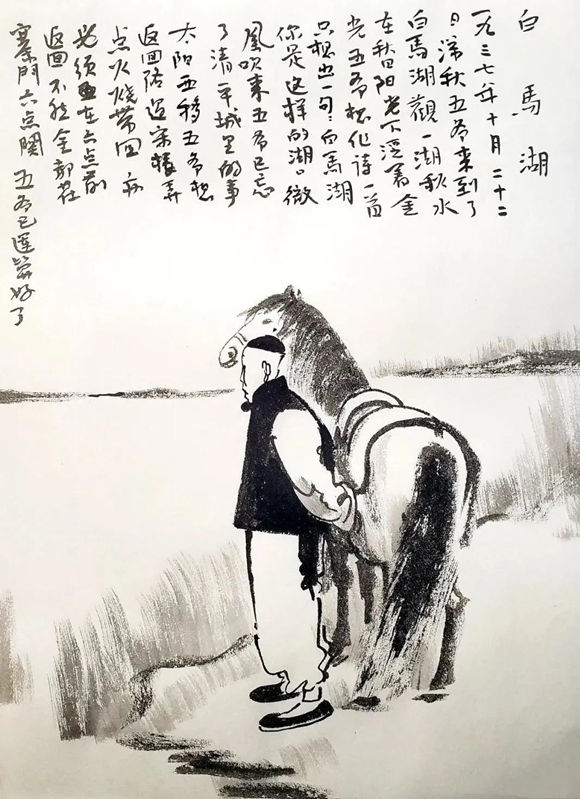 白馬湖
一九三七年十月二十二
日深秋五爷来到了
白馬湖觀一湖秋水
在秋阳光下浸着金
光五爷想作诗一首
只想出一句:白馬湖
你是这样的湖。微
風吹来五爷已忘
了清平城里的事
太阳西移五爷想
返回路过宋樓弄
点火燒带回
必须在六点前
返回不然全部在
寨門六点関 五爷已運算好了